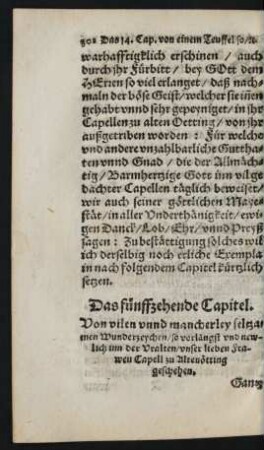 Das 14. Cap. von einem Teuffel so/rc.
warhafftigklich erschinen / auch
durch jhr Fürbitt / bey GOtt dem
HErren so viel erlanget / daß nach-
maln der böse Geist / welcher sie innen
gehabt vnnd sehr gepeyniget / in jhr
Capellen zu alten Oetting / von jhr
außgetriben worden : Für welche
vnd andere vnzahlbarliche Guttha-
ten vnnd Gnad / die der Allmäch-
tig / Barmhertzige Gott inn vilge
dachter Capellen täglich beweiset /
wir auch seiner göttlichen Maye-
stät / in aller Vnderthänigkeit / ewi-
gen Danck / Lob / Ehr / vnnd Preyß
sagen : Zu bestättigung solches wil
ich derselbig noch etliche Exempla
in nach folgendem Capitel kürtzlich
setzen.
Das fünffzehende Capitel.
Von vilen vnnd mancherley seltza-
men Wunderzeychen / so vorlängst vnd new-
lich inn der Vralten / vnser lieben Fra-
wen Capell zu Altenötting
geschehen.
Gantz